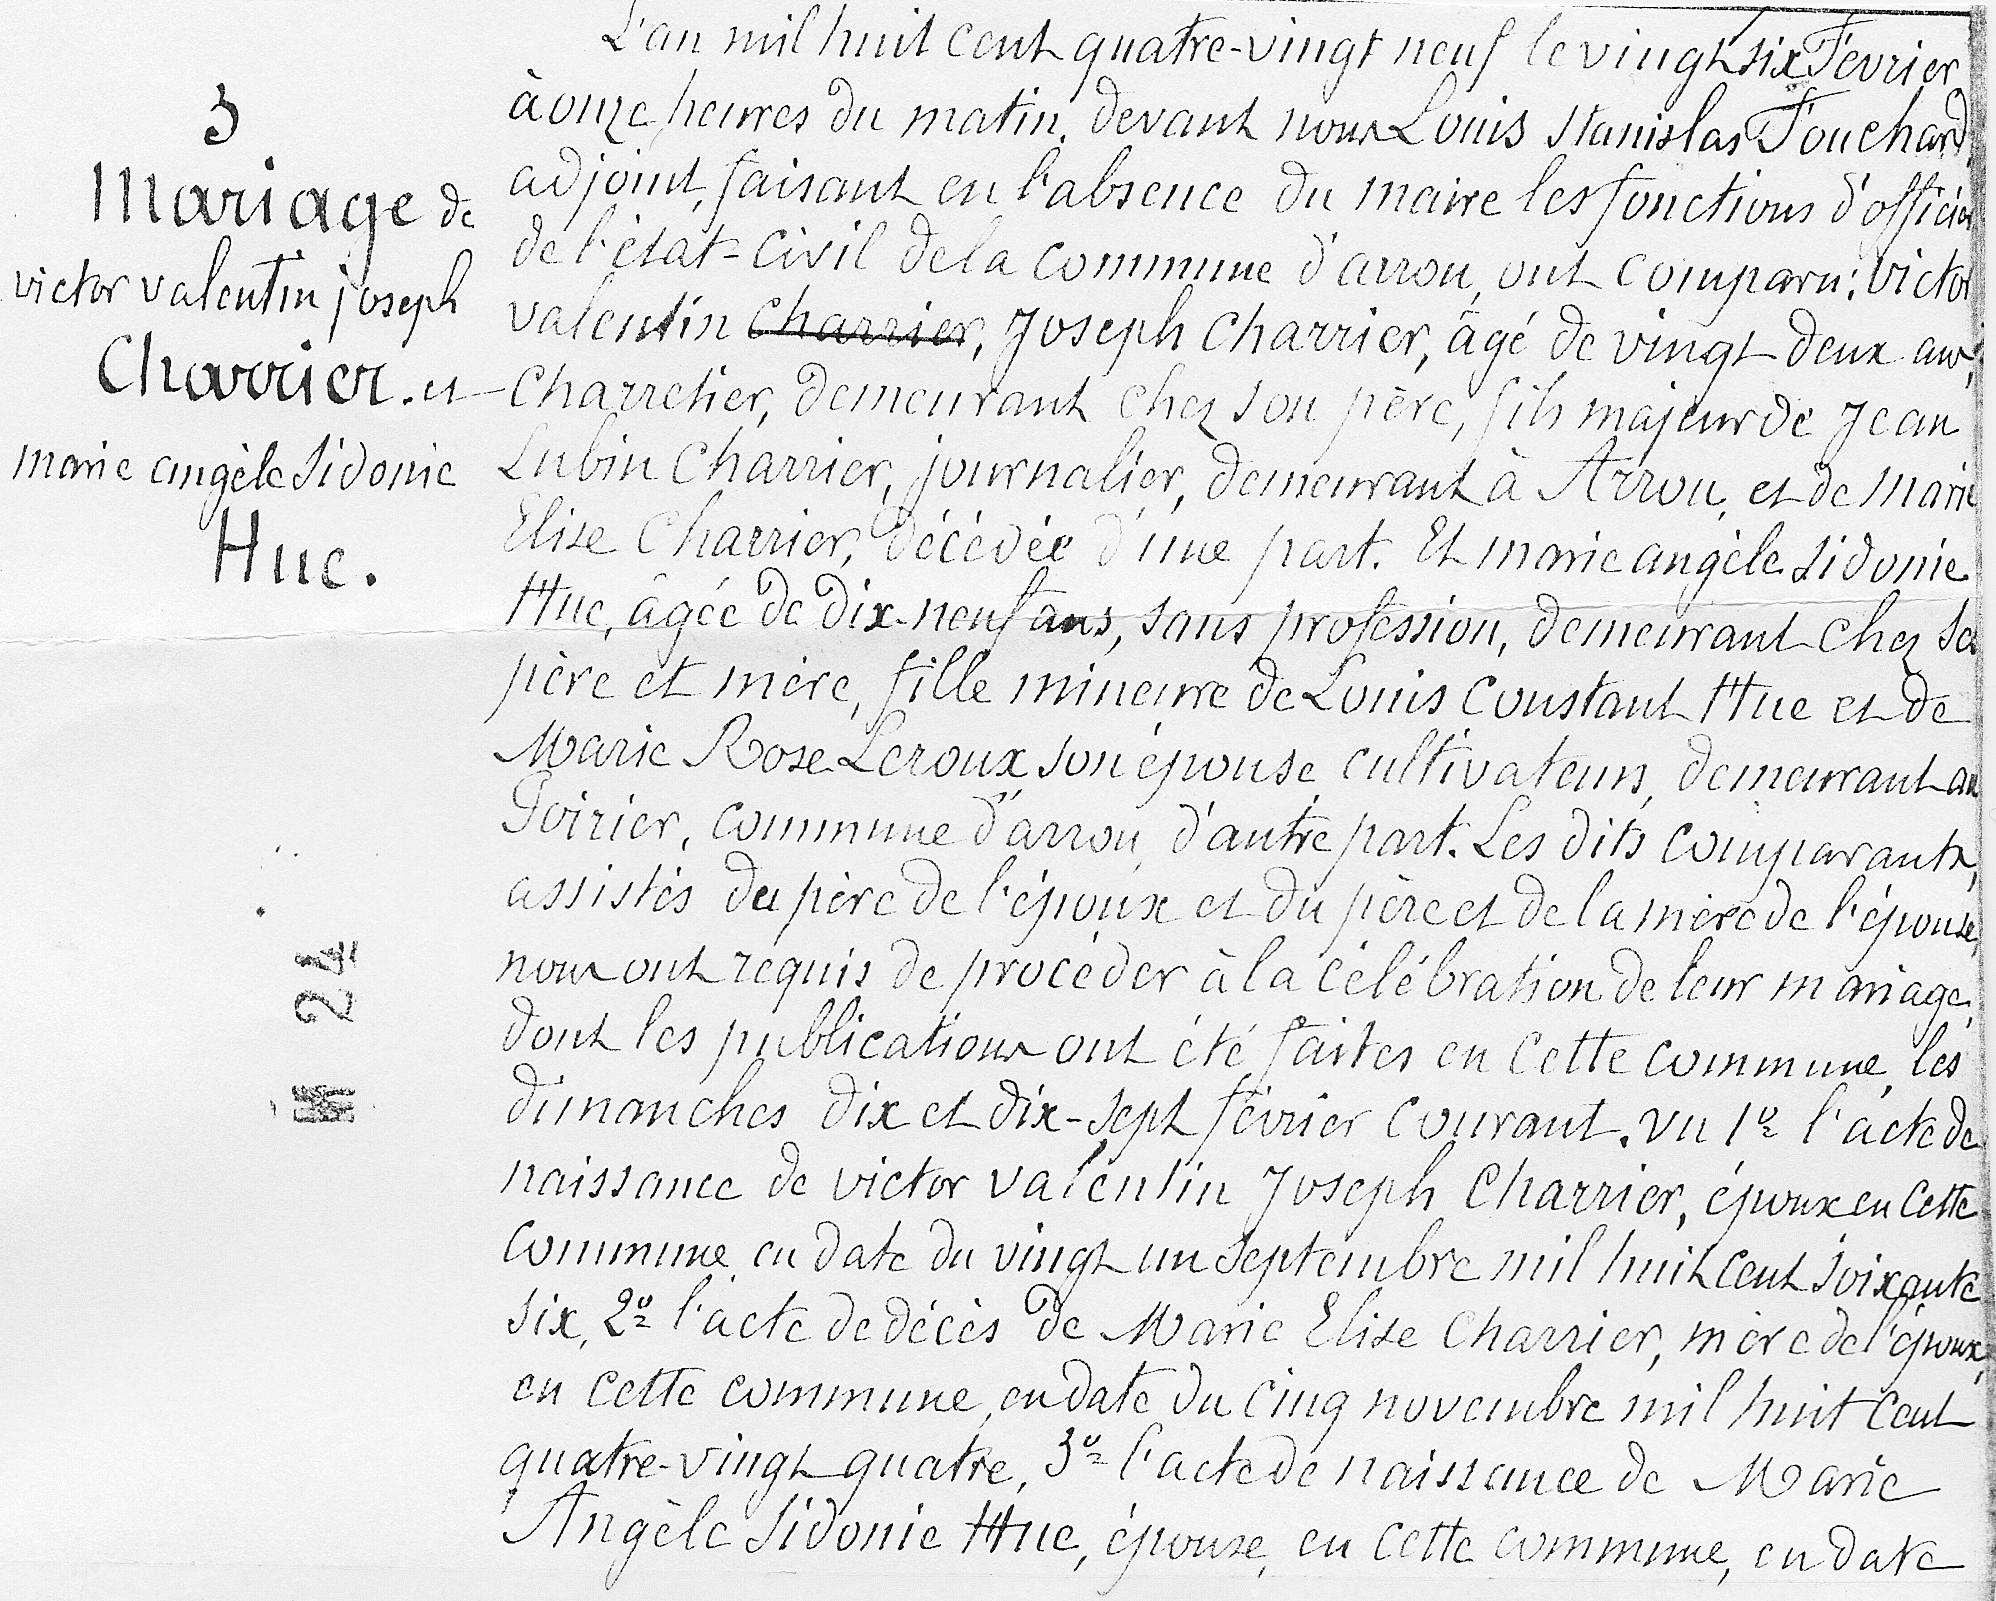 3
Mariage de
victor valentin joseph
Charrier. et
marie angèle Sidonie
Huc.
L'an mil huit cent quatre-vingt neuf le vingt six Février
à onze heures du matin, devant nous Louis Stanislas Fouchard,
adjoint, faisant en l'absence du maire les fonctions d'officier
de l'état-civil de la commune d'arrou, ont comparu: Victor
valentin Charrier, Joseph Charrier, âgé de vingt deux ans,
Charretier, demeurant chez son père, fils majeur de Jean
Lubin Charrier, journalier, demeurant à Arrou, et de Marie
Elise Charrier, décédée d'une part. Et marie angèle Sidonie
Huc, âgée de dix-neuf ans, sans profession, demeurant chez ses
père et mère, fille mineure de Louis Constant Huc et de
Marie Rose Leroux son épouse, cultivateurs, demeurant au
Poirier, commune d'arrou, d'autre part. Les dits comparants,
assistés du père de l'époux et du père et de la mère de l'épouse,
nous ont requis de procéder à la célébration de leur mariage,
dont les publications ont été faites en cette commune, les
dimanches dix et dix-sept février courant. Vu 1º l'acte de
naissance de victor valentin Joseph Charrier, époux en cette
commune, en date du vingt un septembre mil huit cent soixante
six, 2º l'acte de décès de Marie Elise Charrier, mère de l'époux,
en cette commune, en date du cinq novembre mil huit cent
quatre-vingt quatre, 3º l'acte de naissance de Marie
Angèle Sidonie Huc, épouse, en cette commune, en date
24